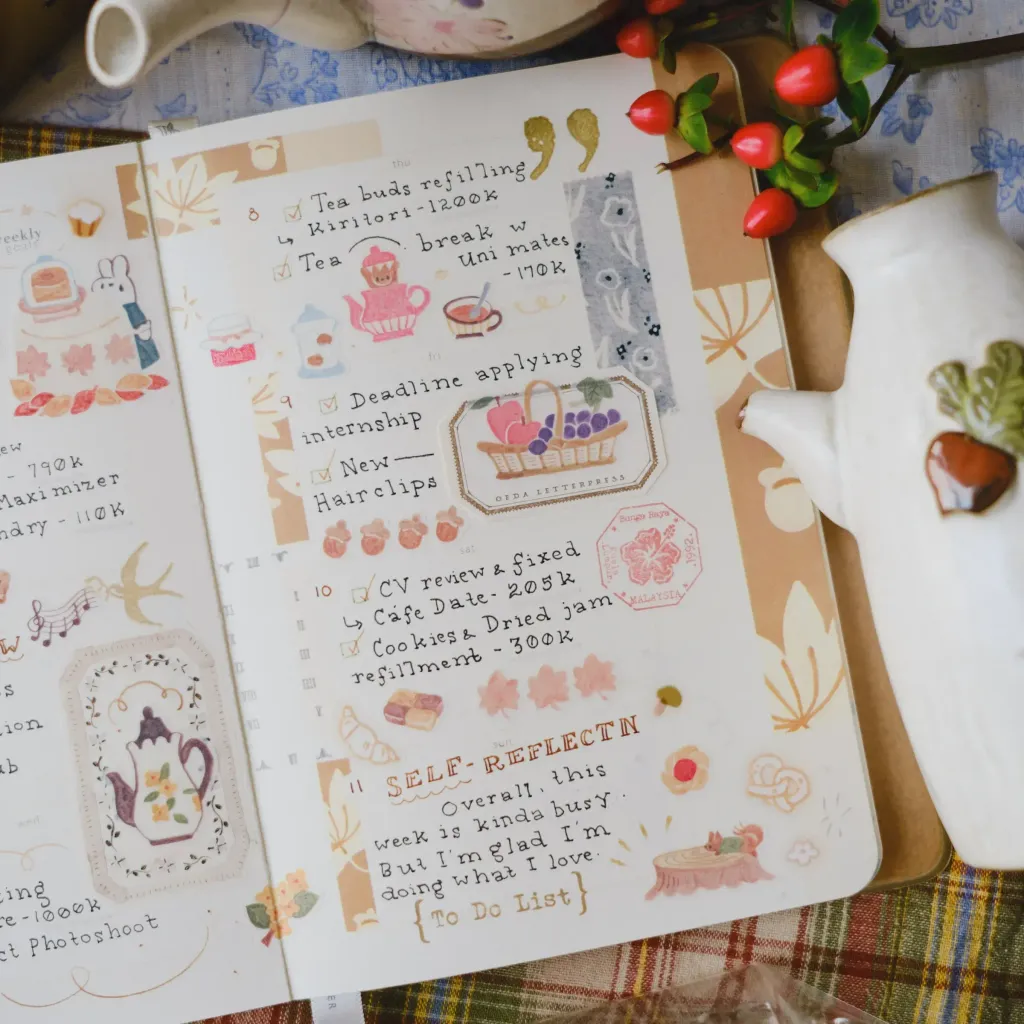 weekly
goals
- 790k
Maximizer
- 110k
ct Photoshoot
-1000k
thu
8
Tea buds refilling
Kiritori-1200k
Tea break w
Uni mates
-170k
fri
9
Deadline applying
internship
New
Hairclips
OEDA LETTERPRESS
sat
10
CV review & fixed
Cafe Date- 205k
Cookies & Dried jam
refillment - 300k
1992
MALAYSIA
sun
11
SELF-REFLECTN
Overall, this
week is kinda busy.
But I'm glad I'm
doing what I love.
{To Do List}